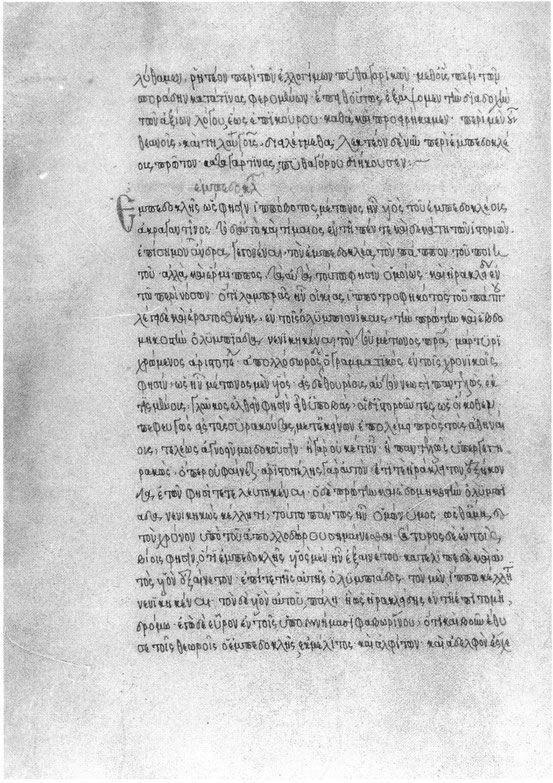 λύθαμεν, ῥητέον περὶ τῶν ἐλλογίμων πυθαγορικῶν· μεθ' οὓς περὶ τῶν
σποράδην κατά τινας φερομένων· ἔπειθ' οὕτως ἐξάψομεν τὴν διαδοχὴν
τῶν ἀξίων λόγου ἕως ἐπικούρου· καθὰ καὶ προειρήκαμεν. περὶ μὲν οὖν
θεανοῦς· καὶ τηλαυγοῦς· διαλέγμεθα, λεκτέον δὲ νῦν περὶ ἐμπεδοκλέ
ους πρῶτον· κατὰ γάρ τινας, πυθαγόρου διήκουσεν:~
ἐμπεδοκλ
Ἐμπεδοκλῆς ὥς φησιν ἱππόβοτος, μέτωνος ἦν υἱὸς τοῦ ἐμπεδοκλέους
ἀκραγαντῖνος. τὸ δ' αὐτὸ καὶ τίμαιος ἐν τῇ πέντε καὶ δεκάτη τῶν ἱστοριῶν.
ἐπίσημον ἄνδρα γεγονέναι τὸν ἐμπεδοκλέα, τὸν πάππον τοῦ ποιη
τοῦ ἀλλὰ καὶ ἕρμιππος τὰ αὐτὰ τούτω φησὶν ὁμοίως καὶ ἡρακλείδης ἐν
τῷ περὶ νόσων ὅτι λαμπρᾶς ἦν οἰκίας, ἱπποτροφηκότος τοῦ πάππου
λέγει δὲ καὶ ἐρατοσθένης, ἐν τοῖς ὀλυμπιονίκαις, τὴν πρώτην καὶ ἑβδο
μηκοστὴν ὀλυμπιάδα, νενικηκέναι τὸν τοῦ μέτωνος πατέρα, μάρτυρι
χρώμενος ἀριστοτέλει. ἀπολλόδωρος ὁ γραμματικός, ἐν τοῖς χρονικοῖς,
φησὶν· ὡς ἦν μέτωνος μὲν υἱός, εἰς δὲ θουρίους, αὐτὸν νεωστὶ παντελῶς ἐκ
τισμένους, γλαῦκος ἐλθεῖν φησιν εἶθ' ὑποβάς· οἱ δ' ἱστοροῦντες, ὡς οἴκοθεν
πεφευγὼς εἰς τὰς συρακούσας, μετ' ἐκείνων ἐπολέμει πρὸς τοὺς ἀθηναί
ους, τελέως ἀγνοεῖν μοι δοκοῦσιν· ἢ γὰρ οὐκέτ' ἦν· ἢ παντελῶς ὑπεργεγη
ρακώς· ὅπερ οὐ φαίνεται ἀριστοτέλης γὰρ αὐτὸν· ἔτι τε ἡράκλειτον ἑξήκον
τα, ἐτῶν φησὶ τετελευτηκέναι. ὁ δὲ πρώτην καὶ ἑβδομηκοστὴν ὀλυμπι
άδα, νενικηκὼς κέλητι, τούτου πάππος ἦν ὁμώνυμος. ὥσθ' ἅμα, καὶ
τὸν χρόνον ὑπὸ τοῦ ἀπολλοδώρου σημαίνεσθαι σάτυρος δὲ ἐν τοῖς
βίοις φησὶν, ὅτι ἐμπεδοκλῆς υἱὸς μὲν ἦν ἐξαινέτου κατέλιπε δὲ καὶ αὐ
τὸς υἱὸν ἐξαίνετον. ἐπί τε τῆς αὐτῆς ὀλυμπιάδος, τὸν μὲν ἵππῳ κέλητι
νενικηκέναι. τὸν δὲ υἱὸν αὐτοῦ, πάλῃ· ἢ ὡς ἡρακλείδης ἐν τῇ ἐπιτομῇ,
δρόμῳ· ἐγὼ δὲ εὗρον ἐν τοῖς ὑπομνήμασι φαβωρίνου, ὅτι καὶ βοῦν ἔθυ
σε τοῖς θεωροῖς ὁ ἐμπεδοκλῆς, ἐκ μέλιτος· καὶ ἀλφίτων· καὶ ἀδελφὸν ἔσχε